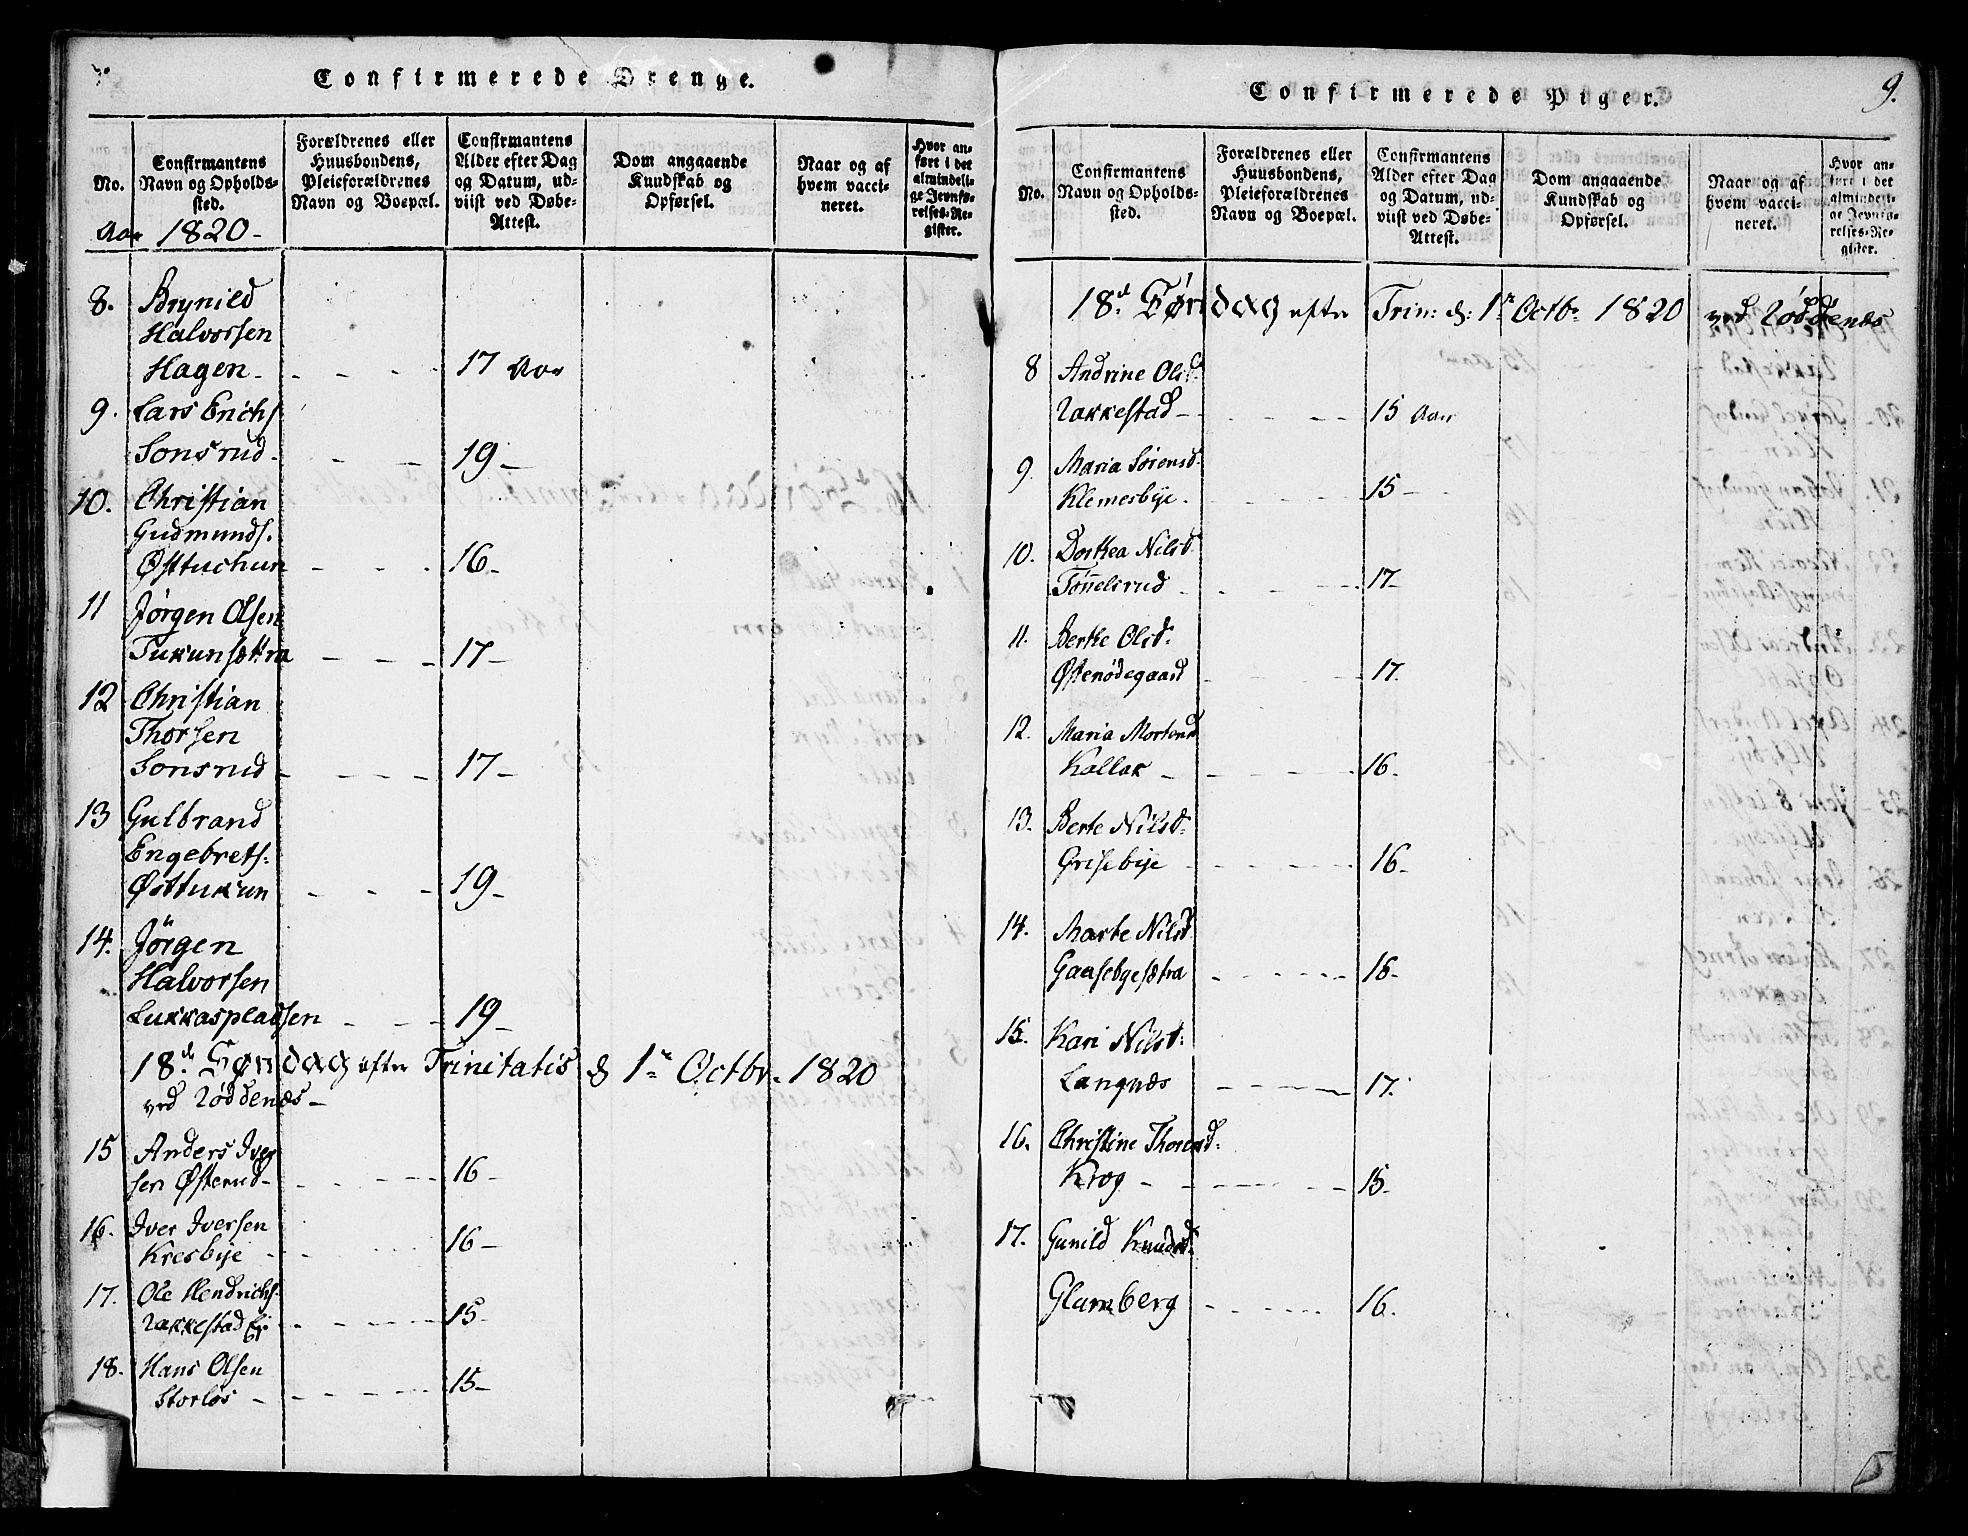 Confirmerede Drenge.
No.
Confirmantens
Navn og Opholds-
sted.
Forældrenes eller
Huusbondens,
Pleieforældrenes
Navn og Boepæl.
Confirmantens
Alder efter Dag
og Datum, ud-
viist ved Døbe-
Attest.
Dom angaaende
Kundskab og
Opførsel.
Naar og af
hvem vacci-
neret.
Hvor an-
ført i det
almindeli-
ge Jevnfø-
relses-Re-
gister.
Aar 1820-
8. Brynild
Halvorsen
Hagen - - - - 17 Aar
9. Lars Erichs
Sonsrud - - - 19 -
10. Christian
Gudmunds.
Østtuchun - - - 16 -
11 Jørgen Olsen
Tukunsættra - - - 17 -
12 Christian
Thorsen
Sonsrud - - - - 17 -
13 Gulbrand
Engebrets:
Østtukun - - - 19 -
14. Jörgen
Halvorsen
Lukkaspladsen - - - 19 -
18de Søndag efter Trinitatis d 1te Octbr. 1820
ved Röddenæs -
15 Anders Iver
sen Østerud - - - - 16 -
16. Iver Iversen
Kresbye - - - 16 -
17. Ole Hendrichs.
Rakkestad Ej. - - - - 15 -
18. Hans Olsen
Storløs - - - - - 15 -
Confirmerede Piger.
9.
No.
Confirmantens
Navn og Opholds-
sted.
Forældrenes eller
Huusbondens,
Pleieforældrenes
Navn og Boepæl.
Confirmantens
Alder efter Dag
og Datum, ud-
viist ved Døbe-
Attest.
Dom angaaende
Kundskab og
Opførsel.
Naar og af
hvem vacci-
neret.
Hvor an-
ført i det
almindeli-
ge Jevnfø-
relses-Re-
gister.
18d. Søndag efter Trin: d: 1te Octbr 1820 ved Röddenæs
8 Andrine Olsd:
Rakkestad - - - - 15 Aar
9. Maria Sörensd.
Klemesbye - - - - 15 -
10. Dorthea Nilsd:
Tönnelsrud - - - - 17 -
11. Berthe Olsd.
Östenödegaard - - - - 17.
12. Maria Mortensd
Kallak - - - - - 16 -
13. Berte Nilsd:
Grisebye - - - - - 16 -
14. Marte Nilsd
Gaasebyesætra - - - - 16 -
15. Kari Nilsd:
Langnæs - - - - 17.
16. Christine Thoresd:
Krog - - - - - 15 -
17. Gunild Knudsd:
Glamberg - - - - 16.